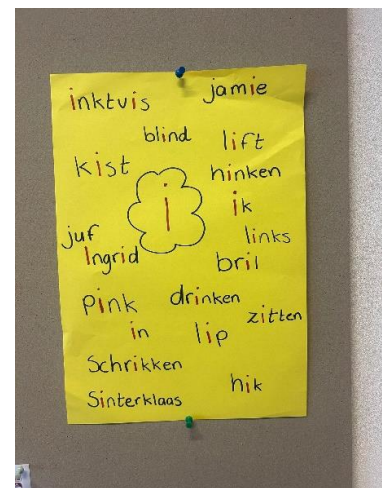 inktvis
jamie
blind
lift
kist
hinken
i
ik
juf
Ingrid
links
bril
pink
drinken
zitten
in
lip
Schrikken
hik
Sinterklaas